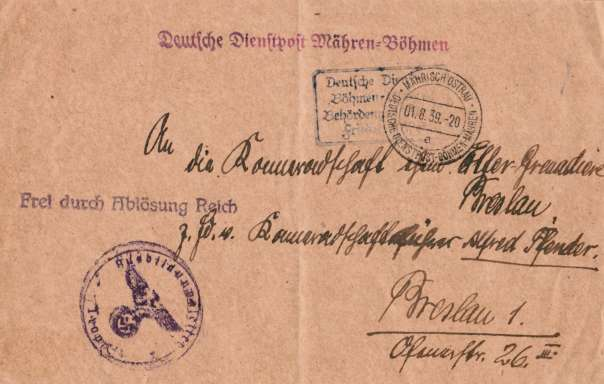 Deutsche Dienstpost Mähren-Böhmen
Deutsche Di
Böhmen-
Behörden
MÄHRISCH OSTRAU
01.8.39.-20
a
DEUTSCHE DIENSTPOST BÖHMEN-MÄHREN
An
die Kameradschaft ehem. Elfer-Grenadiere
Breslau
Frei durch Ablösung Reich
z. Hd. v. Kameradschaftsführer Alfred Pfender.
Breslau 1.
Ofenerstr. 26 III.